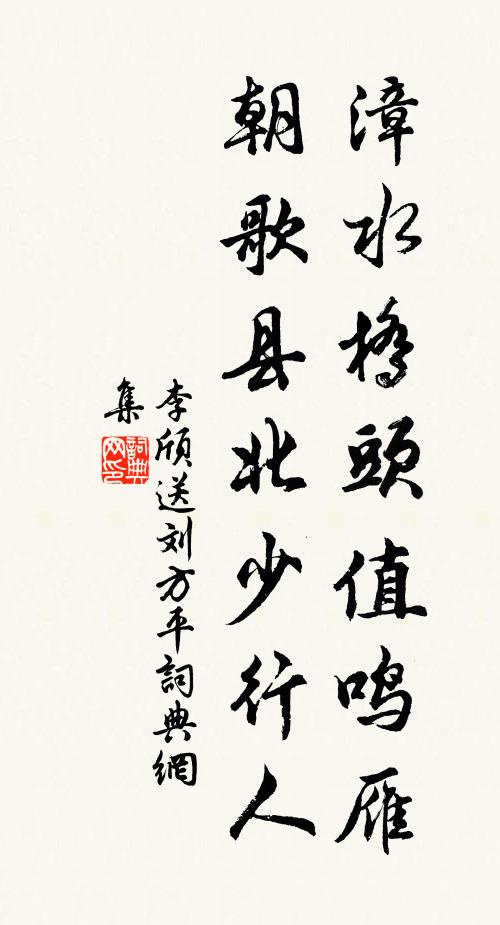 漳水橋頭值鸣雁
朝歌县北少行人
李颀送刘方平詞典網
集
詞典
网印